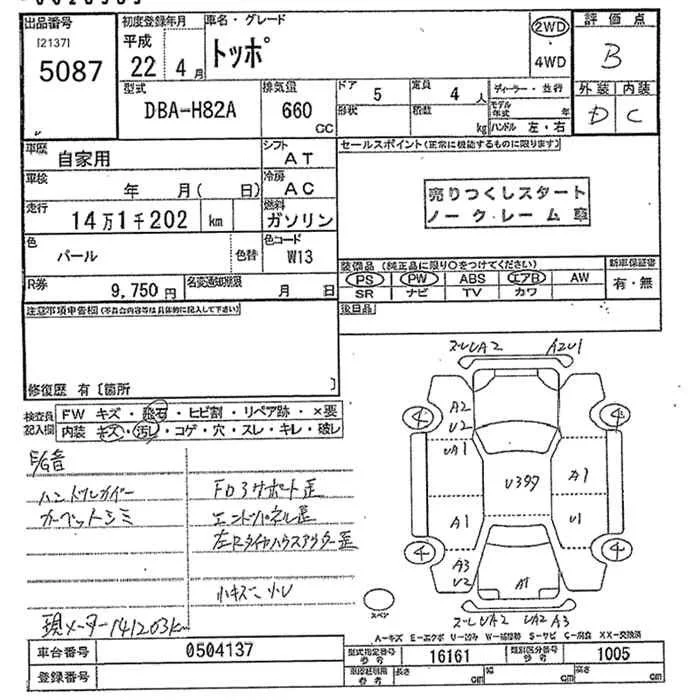 出品番号 初度登録年月 車名・グレード 評価点
[2137] 平成
5087 22年 4月 トッポ 2WD・4WD B
型式 排気量 ドア 5 定員 4人 ディーラー・並行 外装 内装
DBA-H82A 660 CC 形状 積数 kg モデル年式 年 D C
ハンドル 左・右
車歴 自家用 シフト AT セールスポイント(正常に機能するものに限ります)
車検 年 月(日) 冷房 AC
売りつくしスタート
ノークレーム車
走行 14万1千202 km 燃料 ガソリン
色 パール 色替 色コード W13
装備品(純正品に限り○をつけてください) 新車保証書
PS PW ABS エアB AW 有・無
SR ナビ TV カワ
R券 9,750円 名変通知期限 月 日
注意事項申告欄(不具合内容等は具体的に記入して下さい) 後日品
修復歴 有〔箇所 〕
検査員記入欄 FW キズ・飛石・ヒビ割・リペア跡・×要
内装 キズ・汚レ・コゲ・穴・スレ・キレ・破レ
ズレUA2 A2U1
A2
U2
UA1
U397
A1
A1
U1
A3
U2
A1
4
4
4
4
ズレUA2 UA2 A3
スペア
E/G音
カーペットシミ
エンドパネル歪
小キズ 小U
現メーター141203km
A-キズ E-エクボ U-凹み W-補修跡 S-サビ C-腐食 XX-交換済
車台番号 0504137 型式指定番号 参考 16161 類別区分番号 参考 1005
登録番号 長さ cm 幅 cm 高さ cm